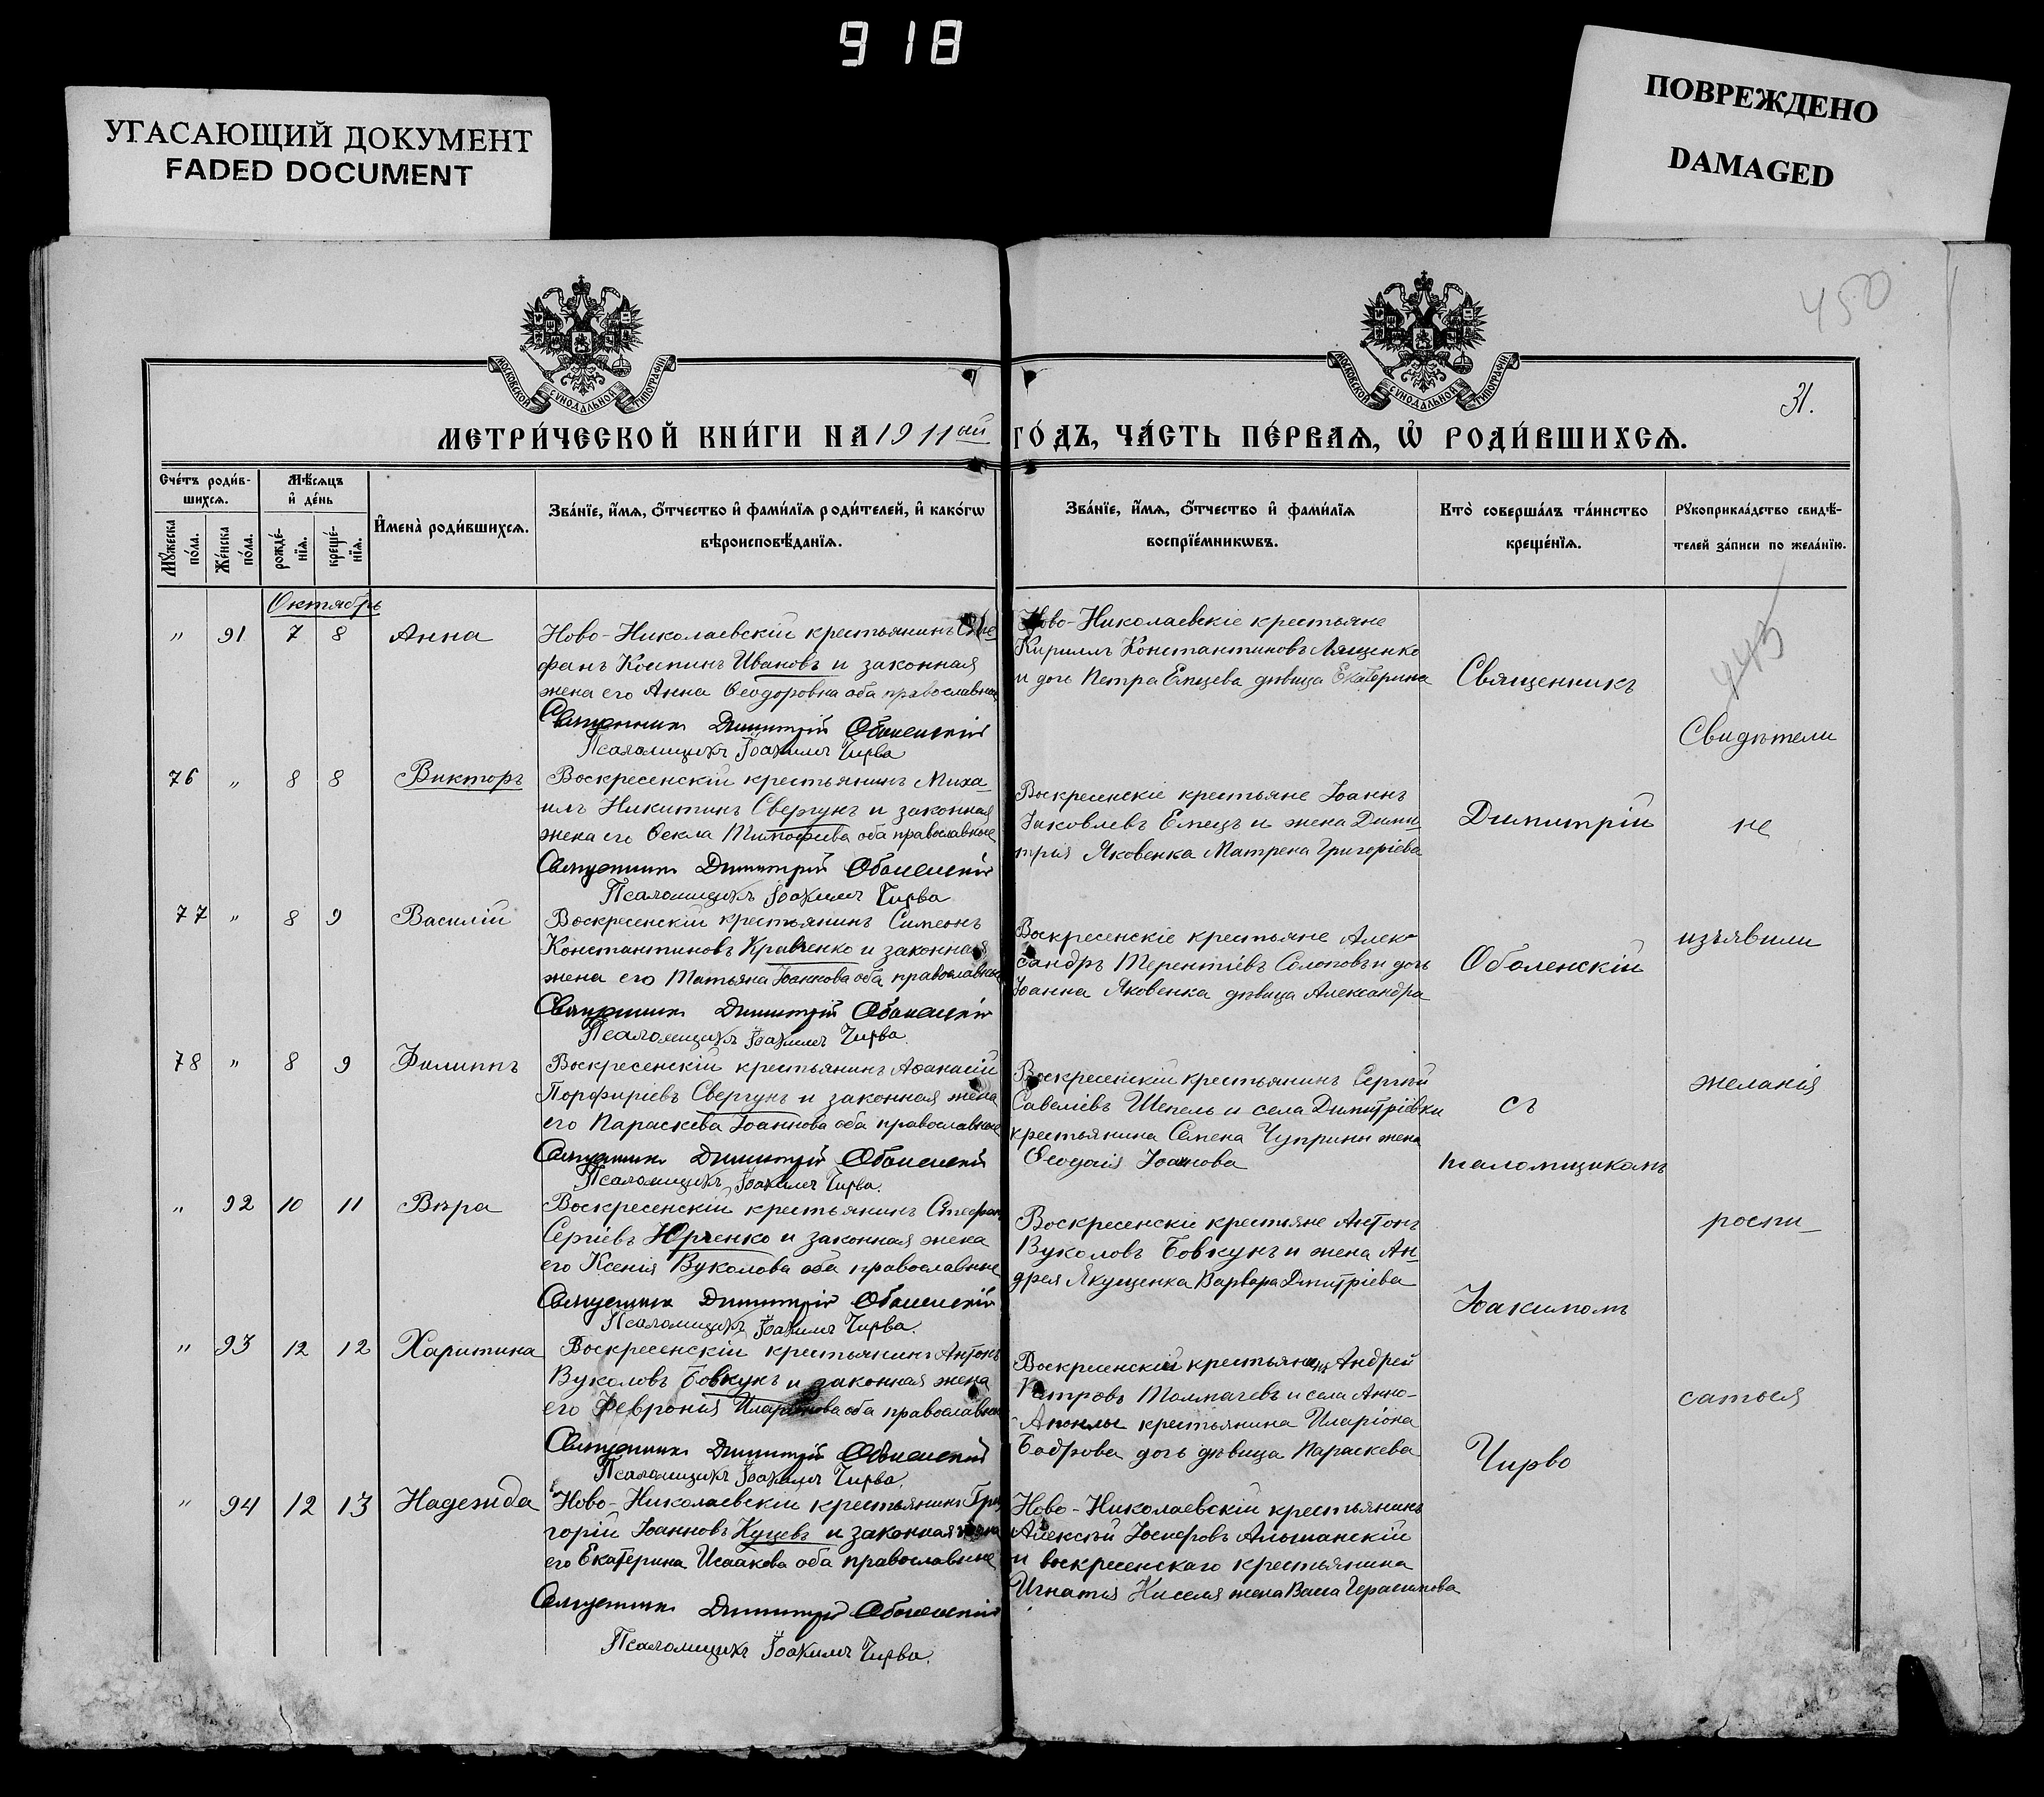 918
УГАСАЮЩИЙ ДОКУМЕНТ
FADED DOCUMENT
ПОВРЕЖДЕНО
DAMAGED
450
31.
МОСКОВСКОЙ СУНОДАЛЬНОЙ ТИПОГРАФІИ
МОСКОВСКОЙ СУНОДАЛЬНОЙ ТИПОГРАФІИ
МЕТРИ́ЧЕСКОЙ КНИ́ГИ НА 1911ый ГО́ДЪ, ЧА́СТЬ ПЕ́РВАѦ, Ѡ҆ РОДИ́ВШИХСѦ.
Сче́тъ роди́в-
шихсѧ.
Мѣ́сѧцъ
и҆ де́нь
Мꙋ́жеска
по́ла.
Же́нска
по́ла.
рожде́-
нїѧ.
креще́-
нїѧ.
И҆мена̀ роди́вшихсѧ.
Зва́нїе, и҆́мѧ, ѻ҆́тчество и҆ фами́лїѧ роди́телей, и҆ како́гѡ
вѣроисповѣ́данїѧ.
Зва́нїе, и҆́мѧ, ѻ҆́тчество и҆ фами́лїѧ
воспрїе́мникѡвъ.
Кто̀ соверша́лъ та́инство
креще́нїѧ.
Рꙋкоприкла́дство свидѣ́-
телей за́писи по жела́нїю.
Октябрь
443
" 91 7 8 Анна
Ново-Николаевскій крестьянинъ Сте
фанъ Ивановъ и законная
жена его Анна Ѳеодоровна оба православные
Священникъ Димитрій Оболенскій
Псаломщикъ Іоакимъ Чирва
Ново-Николаевскіе крестьяне
Кириллъ Константиновъ Лященко
и дочь Петра Емцева дѣвица Екатерина
76 " 8 8 Викторъ
Воскресенскій крестьянинъ Миха-
илъ Никитинъ Свергунъ и законная
жена его Ѳекла Тимофѣева оба православные
Священникъ Димитрій Оболенскій
Псаломщикъ Іоакимъ Чирва
Воскресенскіе крестьяне Іоаннъ
Іаковлевъ Емецъ и жена Дими-
трія Яковенка Матрена Григоріева
77 " 8 9 Василій
Воскресенскій крестьянинъ Симеонъ
Константиновъ Кравченко и законная
жена его Татьяна Іоаннова оба православные
Священникъ Димитрій Оболенскій
Псаломщикъ Іоакимъ Чирва.
Воскресенскіе крестьяне Алек-
сандръ Терентіевъ Солоповъ и дочь
Іоанна Яковенка дѣвица Александра
78 " 8 9 Филиппъ
Воскресенскій крестьянинъ Аѳанасій
Порфиріевъ Свергунъ и законная жена
его Параскева Іоаннова оба православные
Священникъ Димитрій Оболенскій
Псаломщикъ Іоакимъ Чирва.
Воскресенскій крестьянинъ Сергѣй
Савеліевъ Шепель и села Димитріевки
крестьянина Семена Чуприны жена
Ѳеодосія Іоаннова
" 92 10 11 Вѣра
Воскресенскій крестьянинъ Стефанъ
Сергіевъ Юрченко и законная жена
его Ксенія Вуколова оба православные
Священникъ Димитрій Оболенскій
Псаломщикъ Іоакимъ Чирва.
Воскресенскіе крестьяне Антонъ
Вуколовъ Бовкунъ и жена Ан-
дрея Якущенка Варвара Димитріева
" 93 12 12 Харитина
Воскресенскій крестьянинъ Антонъ
Вуколовъ Бовкунъ и законная жена
его Февронія Иларіонова оба православные
Священникъ Димитрій Оболенскій
Псаломщикъ Іоакимъ Чирва.
Воскресенскій крестьянинъ Андрей
Петровъ Толмачевъ и села Анно-
крестьянина Иларіона
Бодрова дочь дѣвица Параскева
" 94 12 13 Надежда
Ново-Николаевскій крестьянинъ Гри
горій Іоанновъ Куцевъ и законная жена
его Екатерина Исаакова оба православные
Священникъ Димитрій Оболенскій
Псаломщикъ Іоакимъ Чирва.
Ново-Николаевскій крестьянинъ
Алексѣй Іосифовъ Альшанскій
и воскресенскаго крестьянина
Игнатія Киселя жена Васса Герасимова
Священникъ
Димитрій
Оболенскій
съ
псаломщикомъ
Іоакимомъ
Чирво
Свидѣтели
не
изъявили
желанія
роспи-
саться